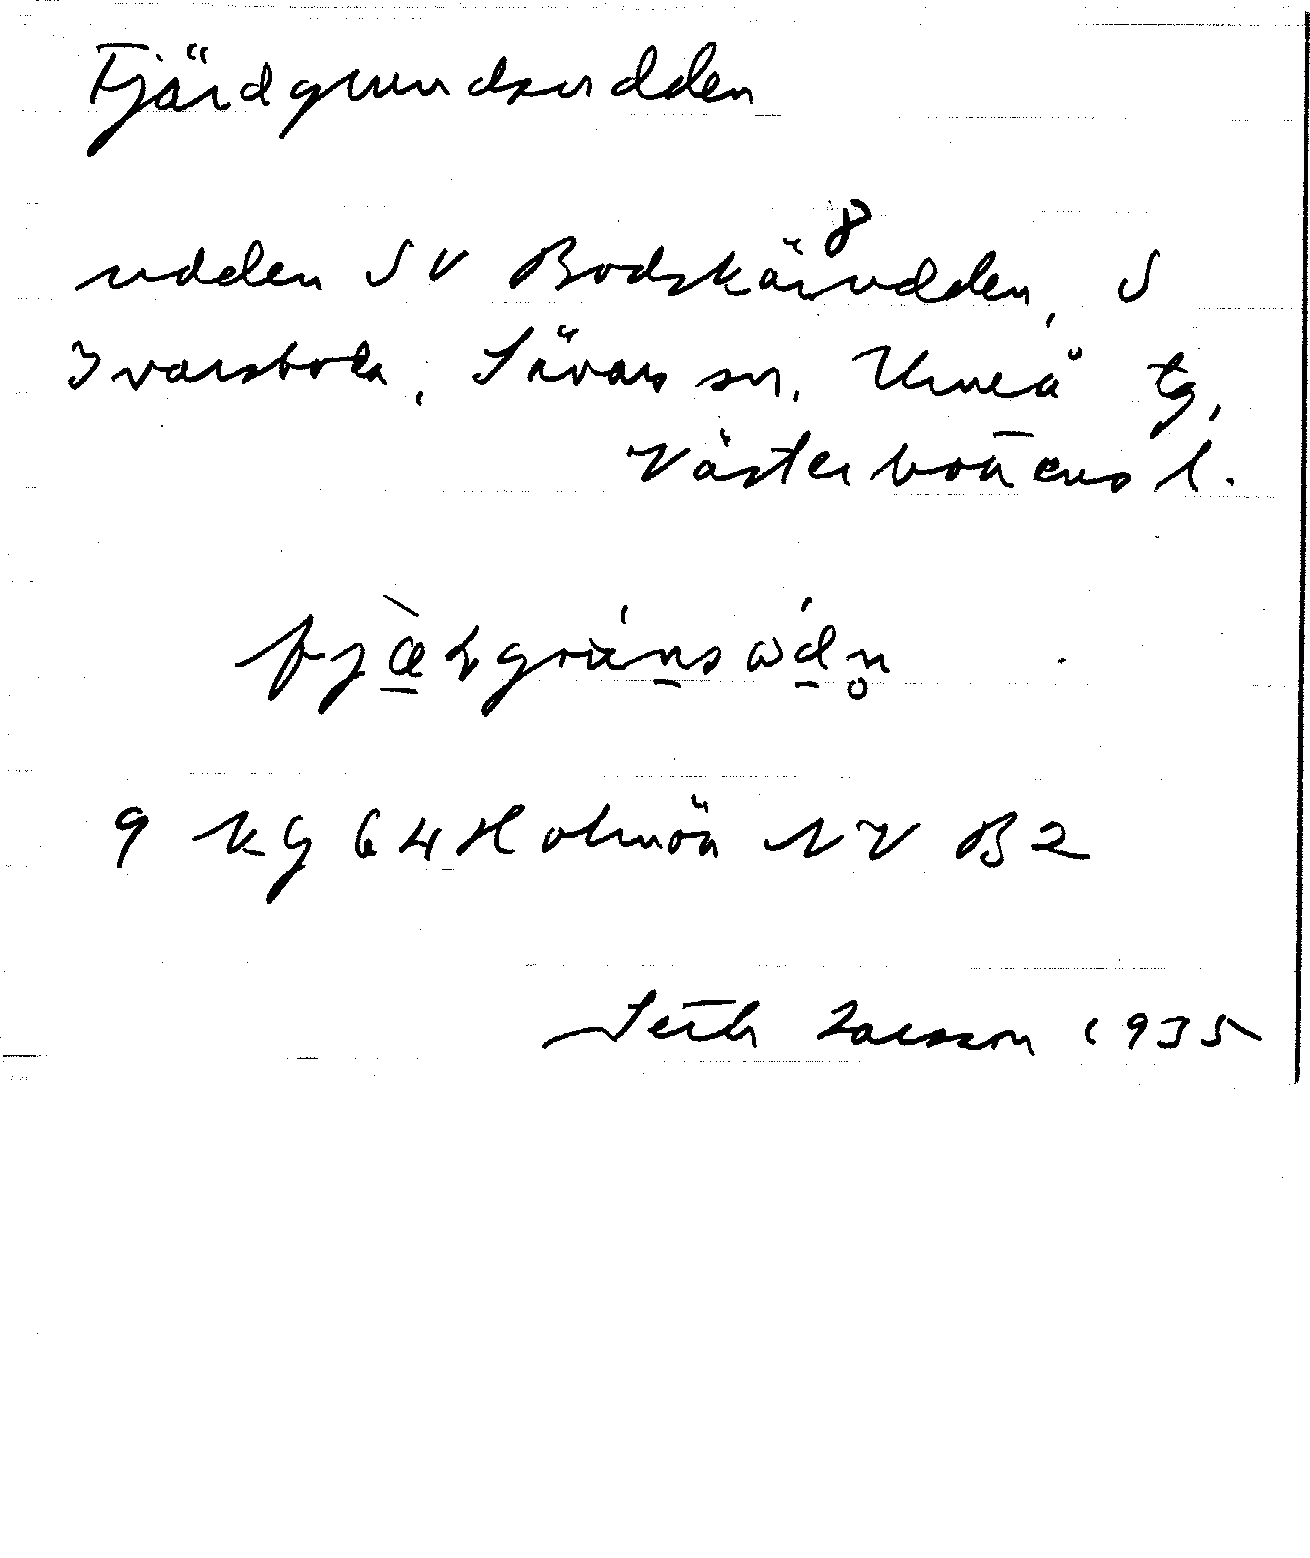 Fjärdgrundsudden
udden SV Bodskärsudden, S
Ivarsboda, Sävars sn, Umeå tg,
Västerbottens l.
9 KG 64 Holmön NV B2
Seth Larsson 1935